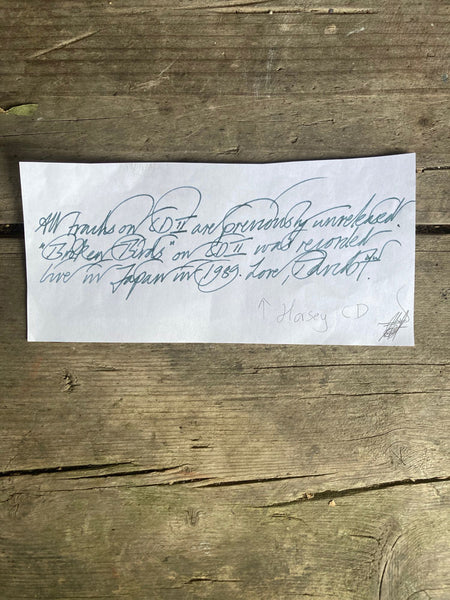 All tracks on CD II are previously unreleased.
"Broken Birds" on CD II was recorded
live in Japan in 1989. Love, David T.
↑ Horsey CD